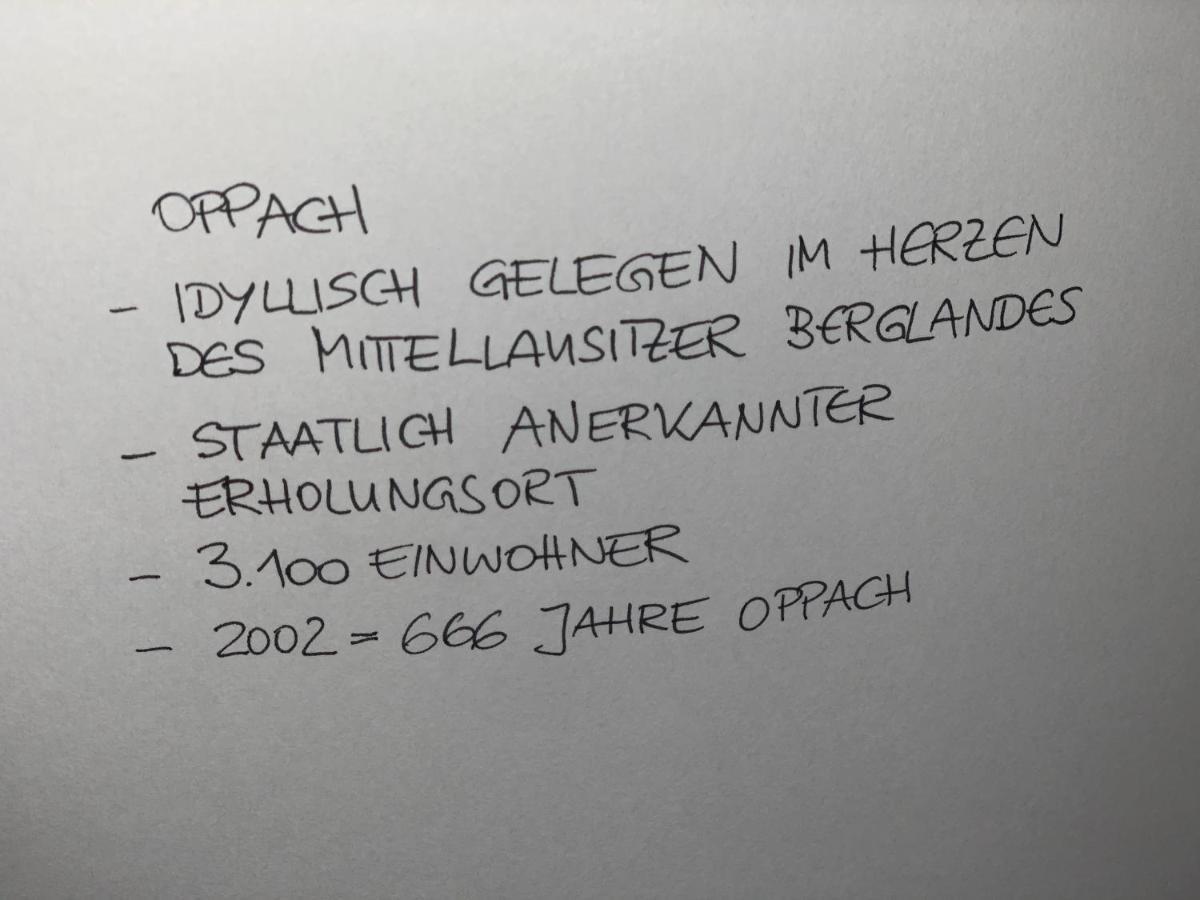 OPPACH
- IDYLLISCH GELEGEN IM HERZEN
DES MITTELLAUSITZER BERGLANDES
- STAATLICH ANERKANNTER
ERHOLUNGSORT
- 3.100 EINWOHNER
- 2002 = 666 JAHRE OPPACH